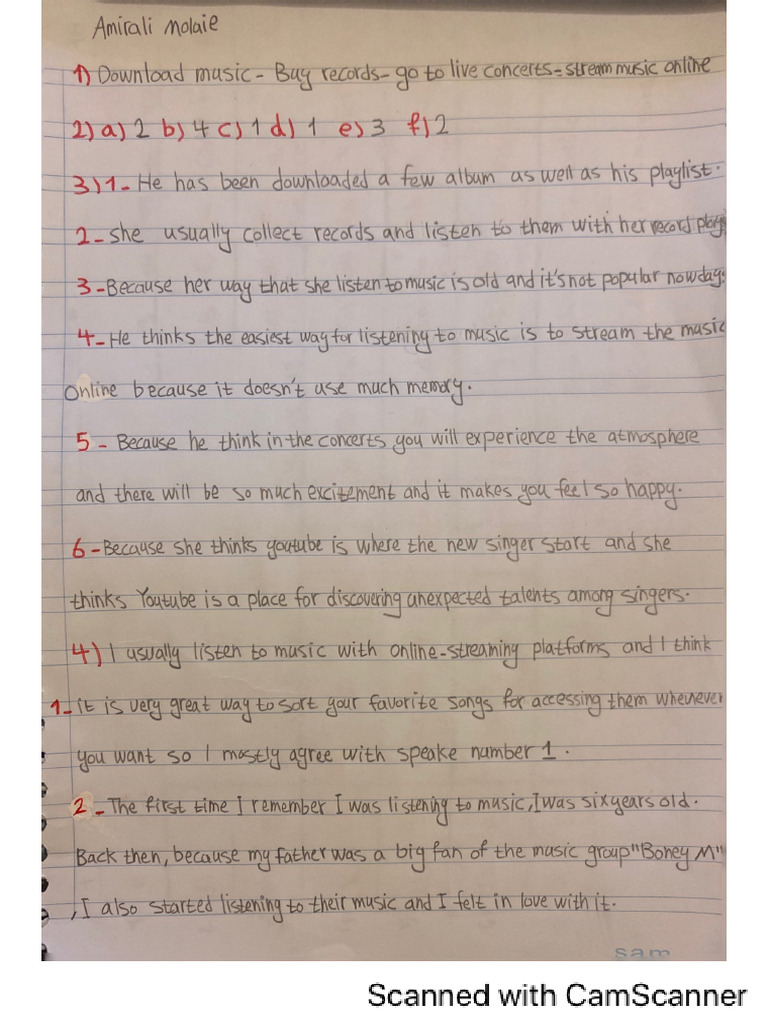 Amirali Molaie
1) Download music - Buy records - go to live concerts - stream music online
2) a) 2 b) 4 c) 1 d) 1 e) 3 f) 2
3) 1- He has been downloaded a few album as well as his playlist.
2- she usually collect records and listen to them with her record play
3- Because her way that she listen to music is old and it's not popular nowday
4- He thinks the easiest way for listening to music is to stream the music
online because it doesn't use much memory.
5- Because he think in the concerts you will experience the atmosphere
and there will be so much excitement and it makes you feel so happy.
6- Because she thinks youtube is where the new singer start and she
thinks Youtube is a place for discovering unexpected talents among singers.
4) I usually listen to music with online-streaming platforms and I think
1- it is very great way to sort your favorite songs for accessing them whenever
you want so I mostly agree with speake number 1.
2- The first time I remember I was listening to music, I was six years old.
Back then, because my father was a big fan of the music group "Boney M"
, I also started listening to their music and I felt in love with it.
sam
Scanned with CamScanner